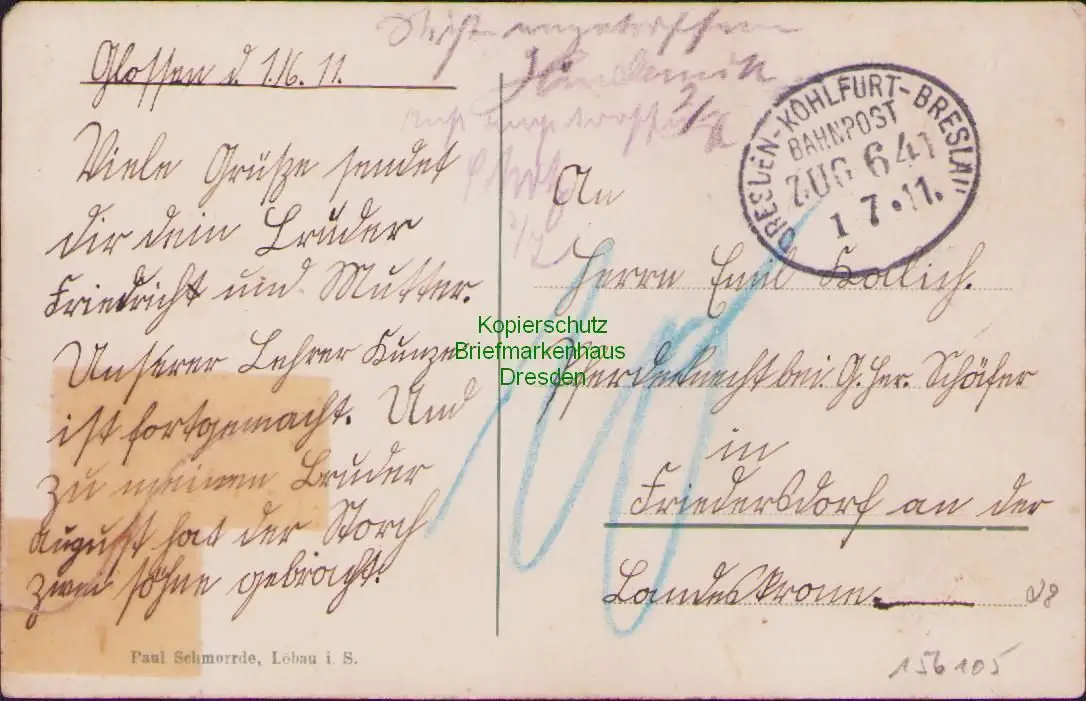 Glossen d 1./6. 11.
Viele Grüße sendet
dir dein Bruder
Friedricht und Mutter.
Unserer Lehrer Kunze
ist fortgemacht. Und
zu meinen Bruder
Augusst hat der Storch
zwei söhne gebracht.
Paul Schmorrde, Löbau i. S.
Nicht angetroffen
DRESDEN-KOHLFURT-BRESLAU
BAHNPOST
ZUG 641
1 7 11.
An
Herrn Emil Kollich.
Pferdeknecht bei G. Her. Schäfer
in
Friedersdorf an der
Landeskrone.
Kopierschutz
Briefmarkenhaus
Dresden
10
156105